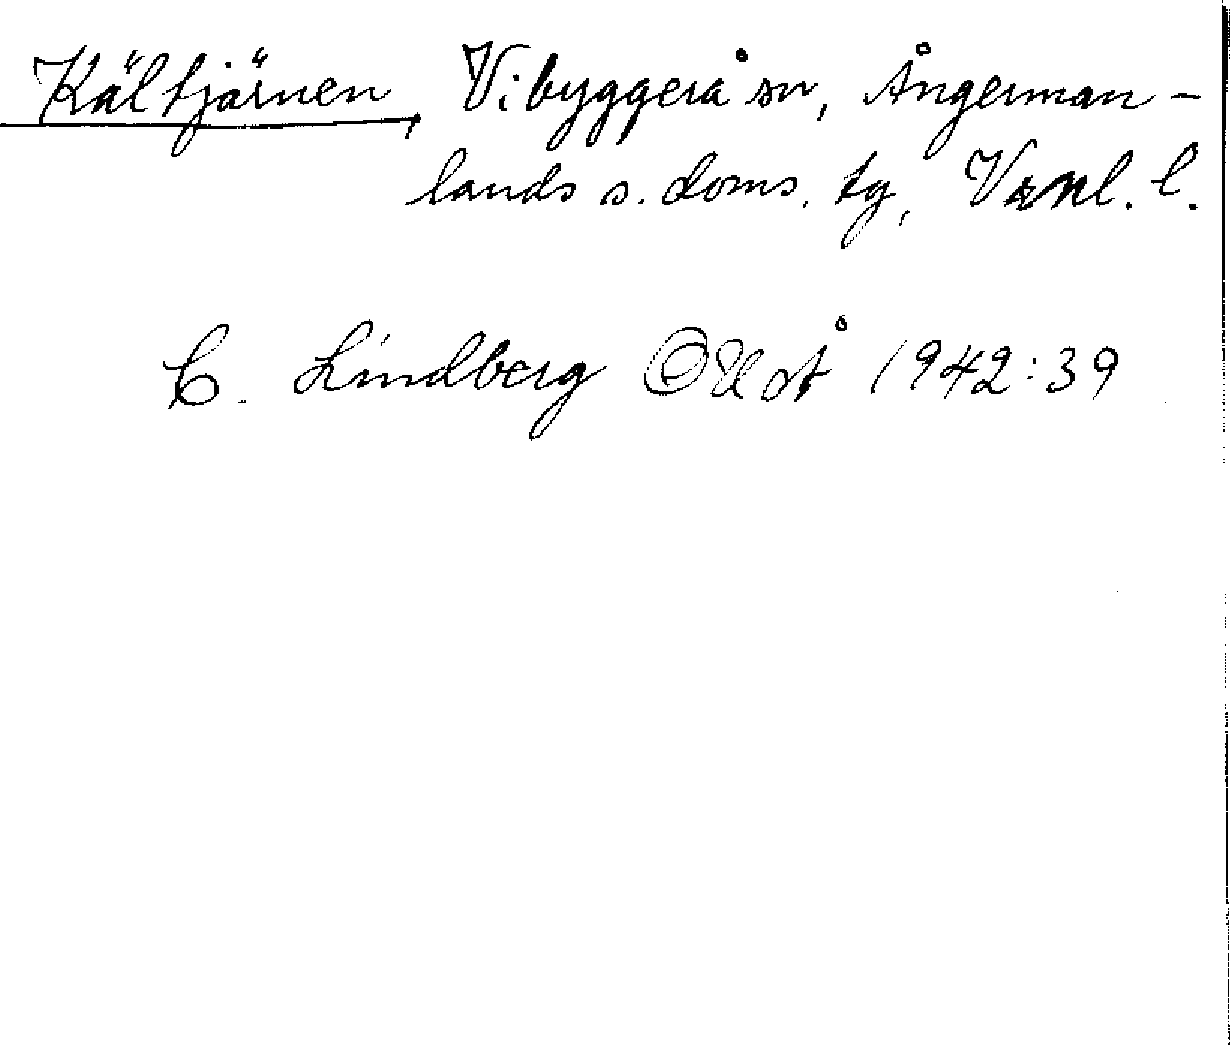 Kältjärnen, Vibyggerå sn, Ångerman-
lands s. doms. tg, Vrnl. l.
C. Lindberg 1942:39